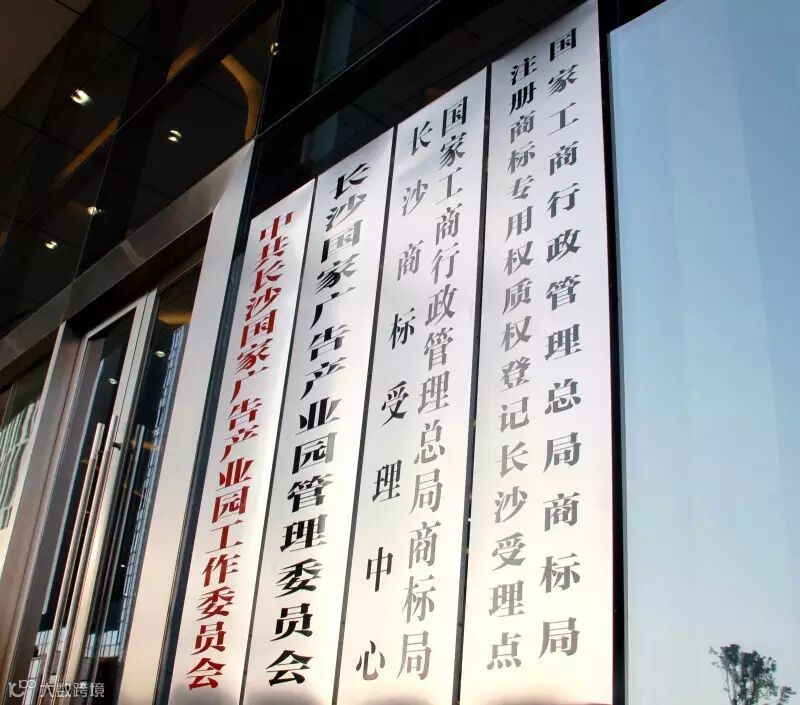 国家工商行政管理总局商标局
注册商标专用权质权登记长沙受理点
国家工商行政管理总局商标局
长沙商标受理中心
长沙国家广告产业园管理委员会
中共长沙国家广告产业园工作委员会
大数跨境